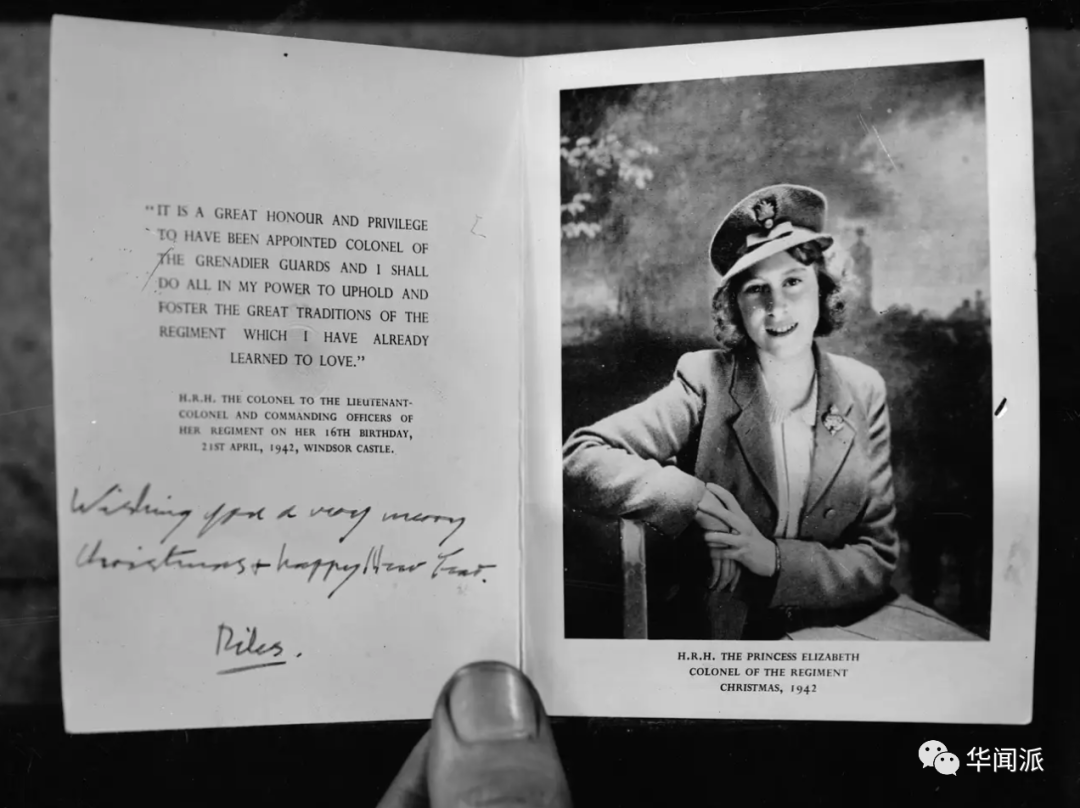 "IT IS A GREAT HONOUR AND PRIVILEGE
TO HAVE BEEN APPOINTED COLONEL OF
THE GRENADIER GUARDS AND I SHALL
DO ALL IN MY POWER TO UPHOLD AND
FOSTER THE GREAT TRADITIONS OF THE
REGIMENT WHICH I HAVE ALREADY
LEARNED TO LOVE."
H.R.H. THE COLONEL TO THE LIEUTENANT-
COLONEL AND COMMANDING OFFICERS OF
HER REGIMENT ON HER 16TH BIRTHDAY,
21ST APRIL, 1942, WINDSOR CASTLE.
Wishing you a very merry
Christmas + happy New Year.
H.R.H. THE PRINCESS ELIZABETH
COLONEL OF THE REGIMENT
CHRISTMAS, 1942
华闻派